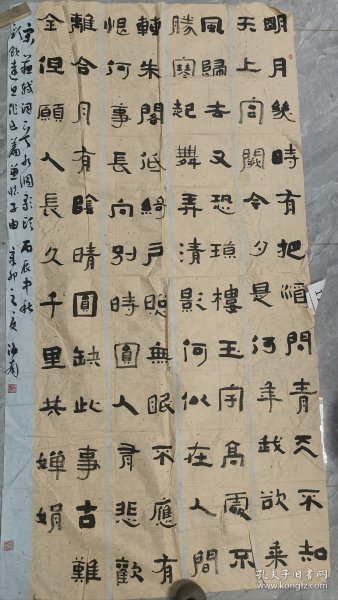 明月幾時有把酒問青天不知
天上宮闕今夕是何年我欲乘
風歸去又恐瓊樓玉宇高處不
勝寒起舞弄清影何似在人間
轉朱閣低綺戶照無眠不應有
恨何事長向別時圓人有悲歡
離合月有陰晴圓缺此事古難
全但願人長久千里共嬋娟
宋蘇軾詞水調歌頭丙辰中秋
歡飲達旦作此篇兼懷子由辛卯之夏
孔夫子旧书网